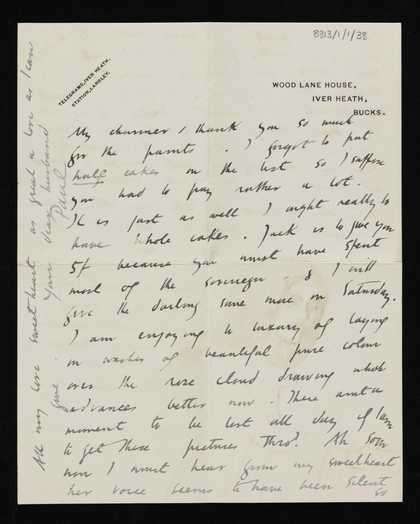 8313/1/1/38
TELEGRAMS, IVER HEATH.
STATION, LANGLEY.
WOOD LANE HOUSE,
IVER HEATH,
BUCKS.
My charmer, thank you so much
for the paints. I forgot to put
half cakes on the list so I suppose
you had to pay rather a lot.
It is just as well I ought really to
have whole cakes. Jack is to give you
5/ because you must have spent
most of the sovereign & I will
give the darling some more on Saturday.
I am enjoying the luxury of laying
on washes of beautiful pure colour
over the rose cloud drawing which
advances better now. There aint a
moment to be lost all day if I am
to get these pictures thro'. Ah soon
now I must hear from my sweetheart
her voice seems to have been silent
so
All my love sweetheart as great a love as I can
give
Your dear husband
Paul